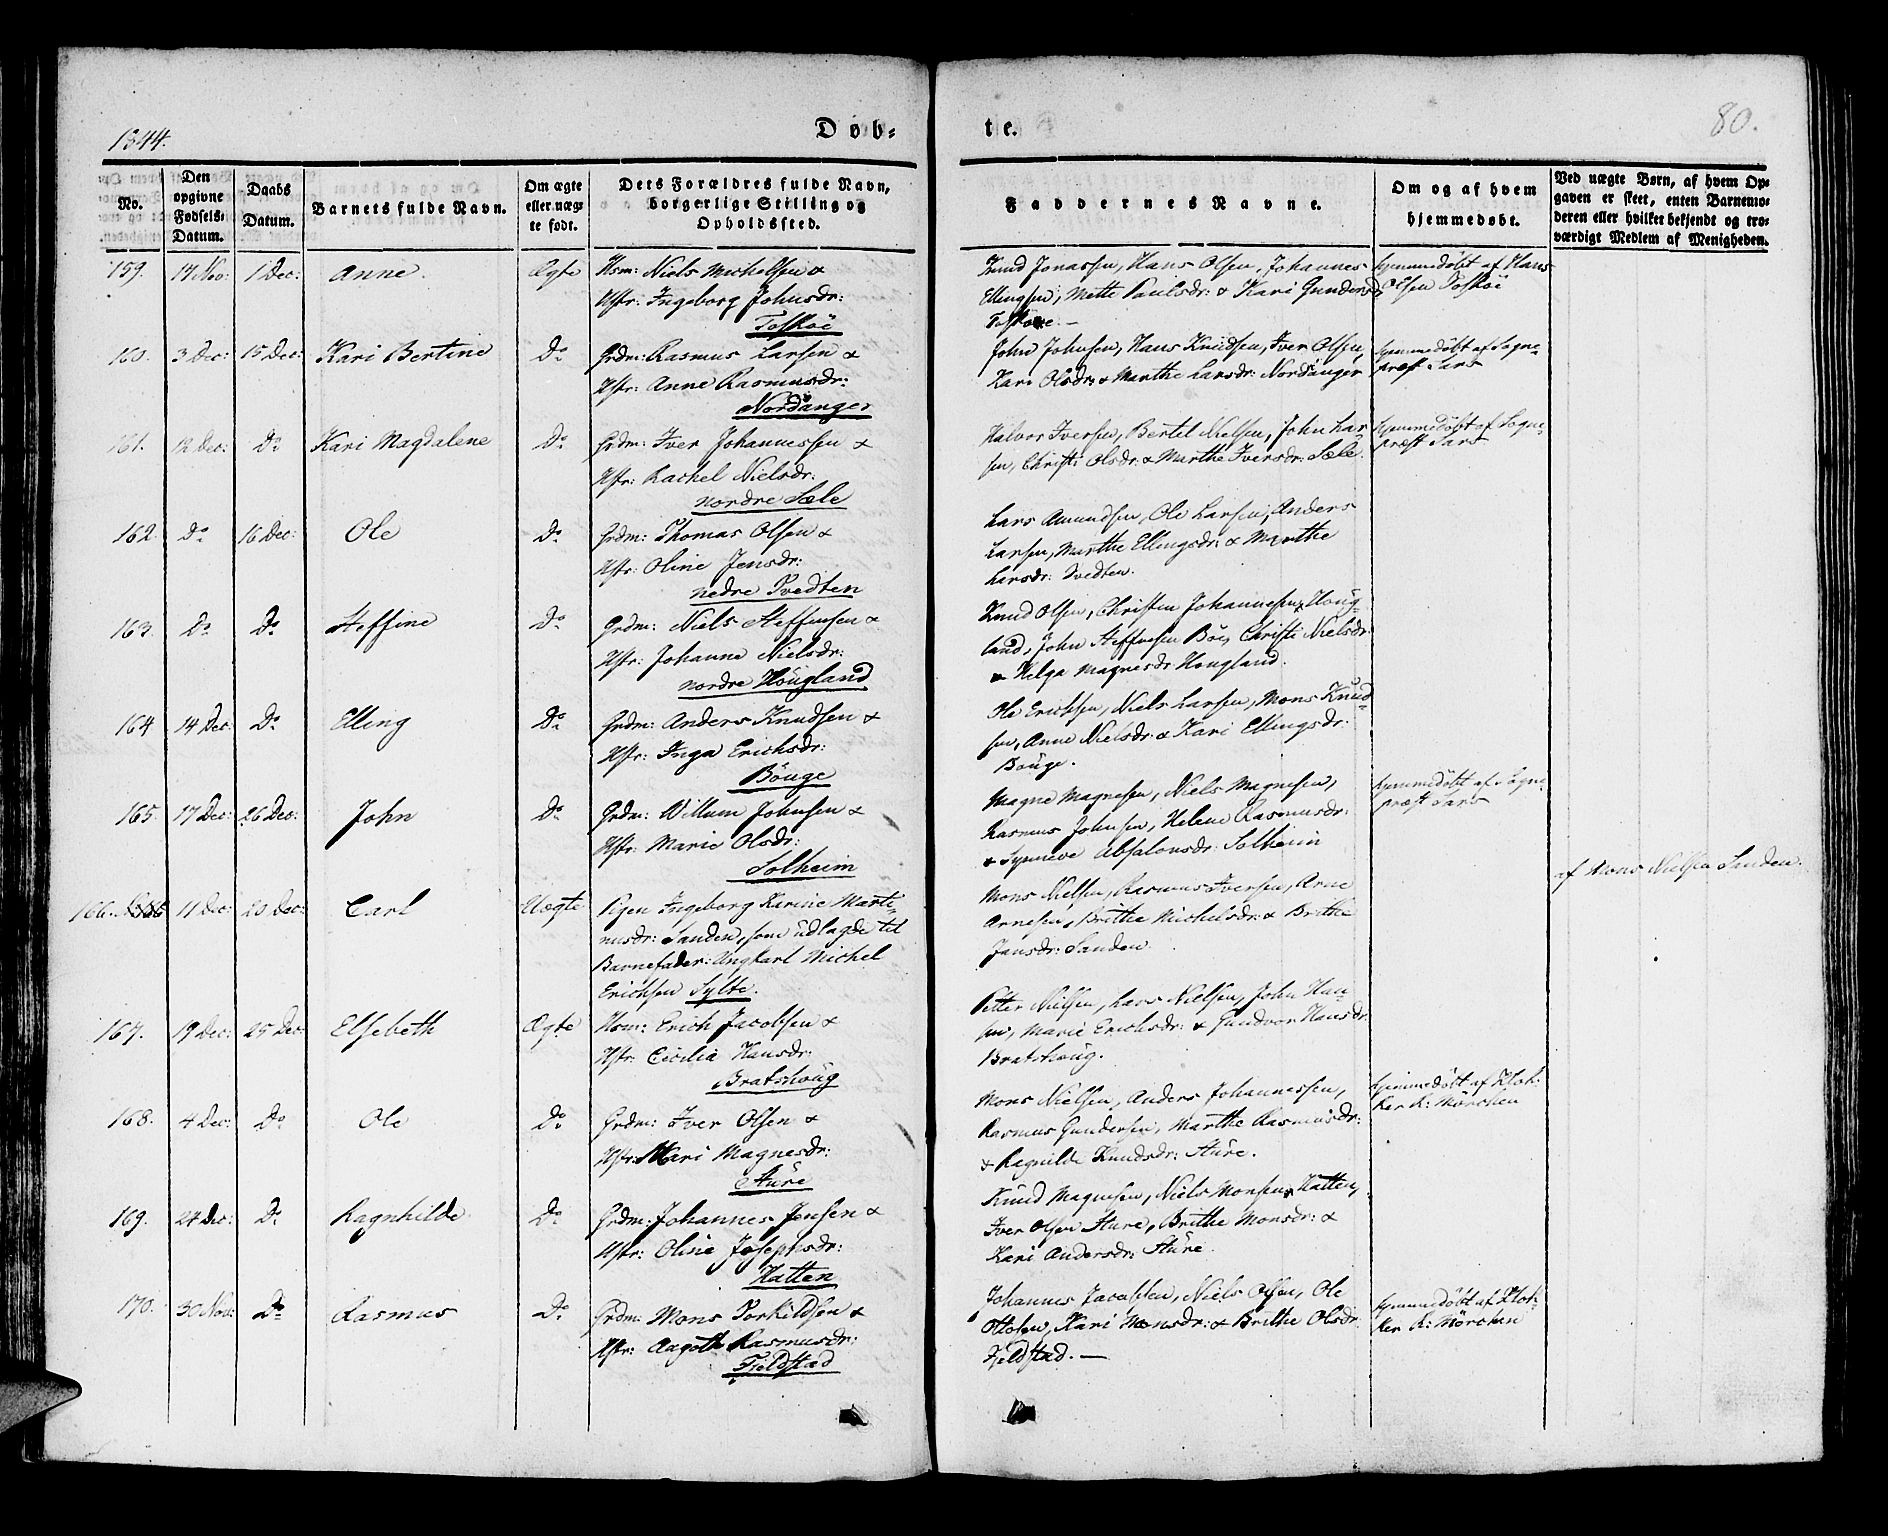 1844.
Døb-
te.
80.
No.
Den opgivne Fødsels-Datum.
Daabs Datum.
Barnets fulde Navn.
Om ægte eller uægte født.
Dets Forældres fulde Navn, borgerlige Stilling og Opholdssted.
Faddernes Navne.
Om og af hvem hjemmedøbt.
Ved uægte Børn, af hvem Opgaven er skeet, enten Barnemoderen eller hvilket bekjendt og troværdigt Medlem af Menigheden.
159. 17 Nov: 1 Dec: Anne. Ægte Hsm: Niels Michelsen &
Hstr: Ingeborg Johnsdr:
Toskøe
Knud Jonassen, Hans Olsen, Johannes
Ellingsen, Mette Paulsdr: & Kari Gundersdr
Toskøe. —
hjemmedøbt af Hans
Olsen Toskøe
160. 3 Dec: 15 Dec: Kari Bertine Do Grdm: Rasmus Larsen &
Hstr: Anne Rasmusdr:
Nordanger
John Johnsen, Hans Knudsen, Iver Olsen,
Kari Olsdr: & Marthe Larsdr: Nordanger
hjemmedøbt af Sogne-
præst Sars
161. 12 Dec: Do Kari Magdalene Do Grdm: Iver Johannessen &
Hstr: Rachel Nielsdr:
nordre Sæle
Halvor Iversen, Bertel Nielsen, John Lar-
sen, Christi Olsdr: & Marthe Iversdr: Sæle.
hjemmedøbt af Sogne-
præst Sars
162. Do 16 Dec: Ole Do Grdm: Thomas Olsen &
Hstr: Oline Jensdr:
nedre Tvedten
Lars Amundsen, Ole Larsen, Anders
Larsen, Marthe Ellingsdr: & Marthe
Larsdr: Tvedten.
163. Do Do Steffine Do Grdm: Niels Steffensen &
Hstr: Johanne Nielsdr:
nordre Hougland
Knud Olsen, Christen Johannesen Houg-
land, John Steffensen Bøe, Christi Nielsdr:
& Helga Magnesdr Hougland.
164 14 Dec: Do Elling Do Grdm: Anders Knudsen &
Hstr: Inga Erichsdr:
Bouge
Ole Erichsen, Niels Larsen, Mons Knud-
sen, Anne Nielsdr: & Kari Ellingsdr:
Bouge.
165. 17 Dec: 26 Dec: John Do Grdm: Willum Johnsen &
Hstr: Marie Olsdr:
Solheim
Magne Magnesen, Niels Magnesen,
Rasmus Johnsen, Helene Rasmusdr:
& Synneve Absalonsdr: Solheim
hjemmedøbt af Sogne-
præst Sars
166. 11 Dec: 23 Dec: Carl Uægte Pigen Ingeborg Karine Marti-
nusdr: Sanden, som udlagde til
Barnefader: Ungkarl Michel
Erichsen Sylte.
Mons Nielsen, Rasmus Iversen, Arne
Arnesen, Brithe Michelsdr: & Brithe
Jansdr: Sanden.
af Mons Nielsen Sanden.
167. 19 Dec: 25 Dec Elsebeth Ægte Hsm: Erich Jacobsen &
Hstr: Cicilia Hansdr:
Bratshoug
Petter Nielsen, Lars Nielsen, John Han-
sen, Marie Erichsdr: & Gundvor Hansdr:
Bratshoug.
168. 4 Dec: Do Ole Do Grdm: Iver Olsen &
Hstr: Mari Magnesdr:
Sture
Mons Nielsen, Anders Johannessen,
Rasmus Gundersen, Marthe Rasmusdr:
& Ragnilde Knudsdr: Sture.
hjemmedøbt af Klok-
ker R: Mörchen
169. 24 Dec: Do Ragnhilde Do Grdm: Johannes Jensen &
Hstr: Oline Josephsdr:
Hatten
Knud Magnesen, Niels Monsen Hatten,
Iver Olsen Sture, Brithe Monsdr: &
Kari Andersdr: Sture.
170. 30 Nov: Do Rasmus Do Grdm: Mons Torkildsen &
Hstr: Aagoth Rasmusdr:
Fjeldstad
Johannes Jacobsen, Niels Olsen, Ole
Ottosen, Kari Monsdr: & Brithe Olsdr
Fjeldstad. —
hjemmedøbt af Klok-
ker R: Mörchen